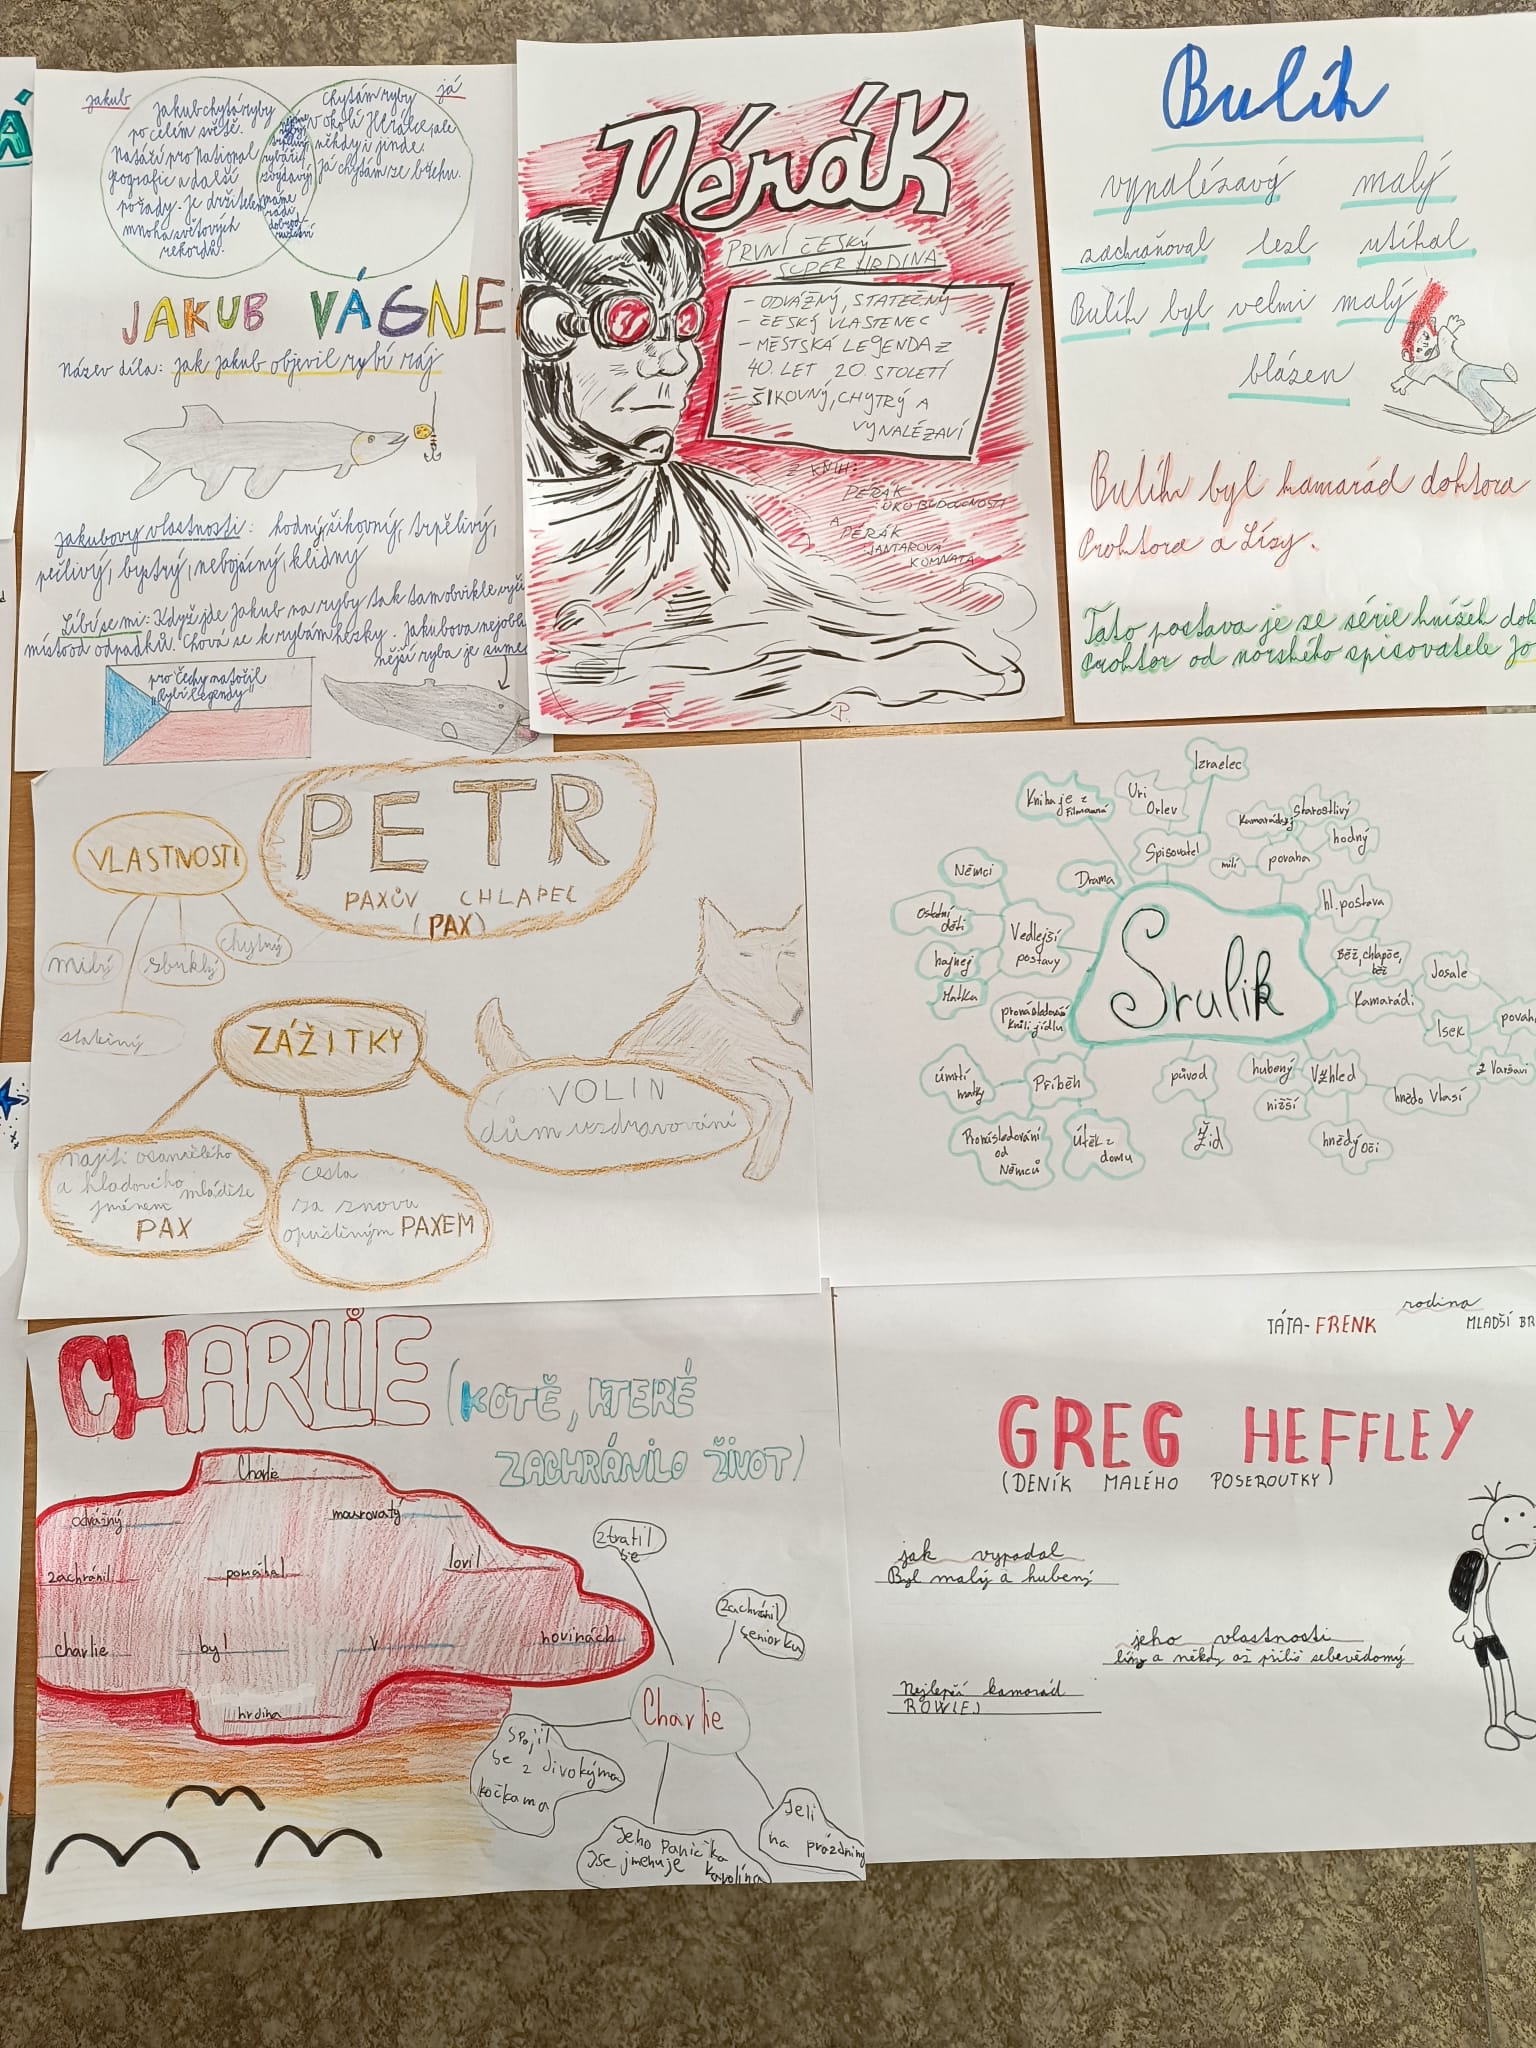 Á
Jakub
Jakub chytá ryby
po celém světě.
Natáčí pro National
geografic a další
pořady. je držitelem
mnoha světových
rekordů.
já
chytám ryby
v okolí
někdy i jinde.
já chytám ze břehu.
máme
rádi
JAKUB VÁGNE
Název díla: Jak Jakub objevil rybí ráj
Jakubovy vlastnosti: hodný, šikovný, trpělivý,
pečlivý, bystrý, nebojácný, klidný
Líbí se mi: Když jde Jakub na ryby tak tam obvikle vyči
místo od odpadků. Chová se k rybám hezky. Jakubova nejobl
nější ryba je sume
pro Čechy natočil
„Rybí legendy"
Pérák
PRVNÍ ČESKÝ
SUPER HRDINA
- ODVÁŽNÝ, STATEČNÝ
- ČESKÝ VLASTENEC
- MĚSTSKÁ LEGENDA Z
40. LET 20. STOLETÍ
- ŠIKOVNÝ, CHYTRÝ A
VYNALÉZAVÍ
Z KNIH:
PÉRÁK
OKO BUDOUCNOSTI
A
PÉRÁK
JANTAROVÁ
KOMNATA
P.
Bulík
vynalézavý malý
zachraňoval lezl utíkal
Bulík byl velmi malý
blázen
Bulík byl kamarád doktora
Proktora a Lízy.
Tato postava je ze série knížek dok
Proktor od norského spisovatele Jo
PETR
PAXŮV CHLAPEC
(PAX)
VLASTNOSTI
milý
zbrklý
chytrý
statečný
ZÁŽITKY
najití osamělého
a hladového mláděte
jménem
PAX
cesta
za znovu
opuštěným PAXEM
VOLIN
dům uzdravování
Srulik
Izraelec
Uri
Orlev
Spisovatel
Kniha je z
Drama
Kamarádský
Starostlivý
hodný
milí
povaha
hl. postava
Běž, chlapče,
běž
Kamarádi
Josale
Isek
povaha
z Varšavi
Němci
Ostatní
děti
hajnej
Matka
Vedlejší
postavy
pronásledování
kvůli jídlu
Příběh
úmrtí
matky
Pronásledování
od
Němců
Útěk z
domu
původ
Žid
Vzhled
hubený
nižší
hnědý oči
hnědo Vlasí
CHARLIE (KOTĚ, KTERÉ
ZACHRÁNILO ŽIVOT)
Charlie
odvážný mourovatý
zachránil pomáhal lovil
Charlie byl v novinách
hrdina
ztratil
se
zachránil
seniorku
Charlie
Spojil
se z divokýma
kočkama
Jeho panička
se jmenuje Karolína
Jeli
na prázdniny
rodina
TÁTA-FRENK
MLADŠÍ BR
GREG HEFFLEY
(DENÍK MALÉHO POSEROUTKY)
jak vypadal
Byl malý a hubený
jeho vlastnosti
líný a někdy až příliš sebevědomý
Nejlepší kamarád